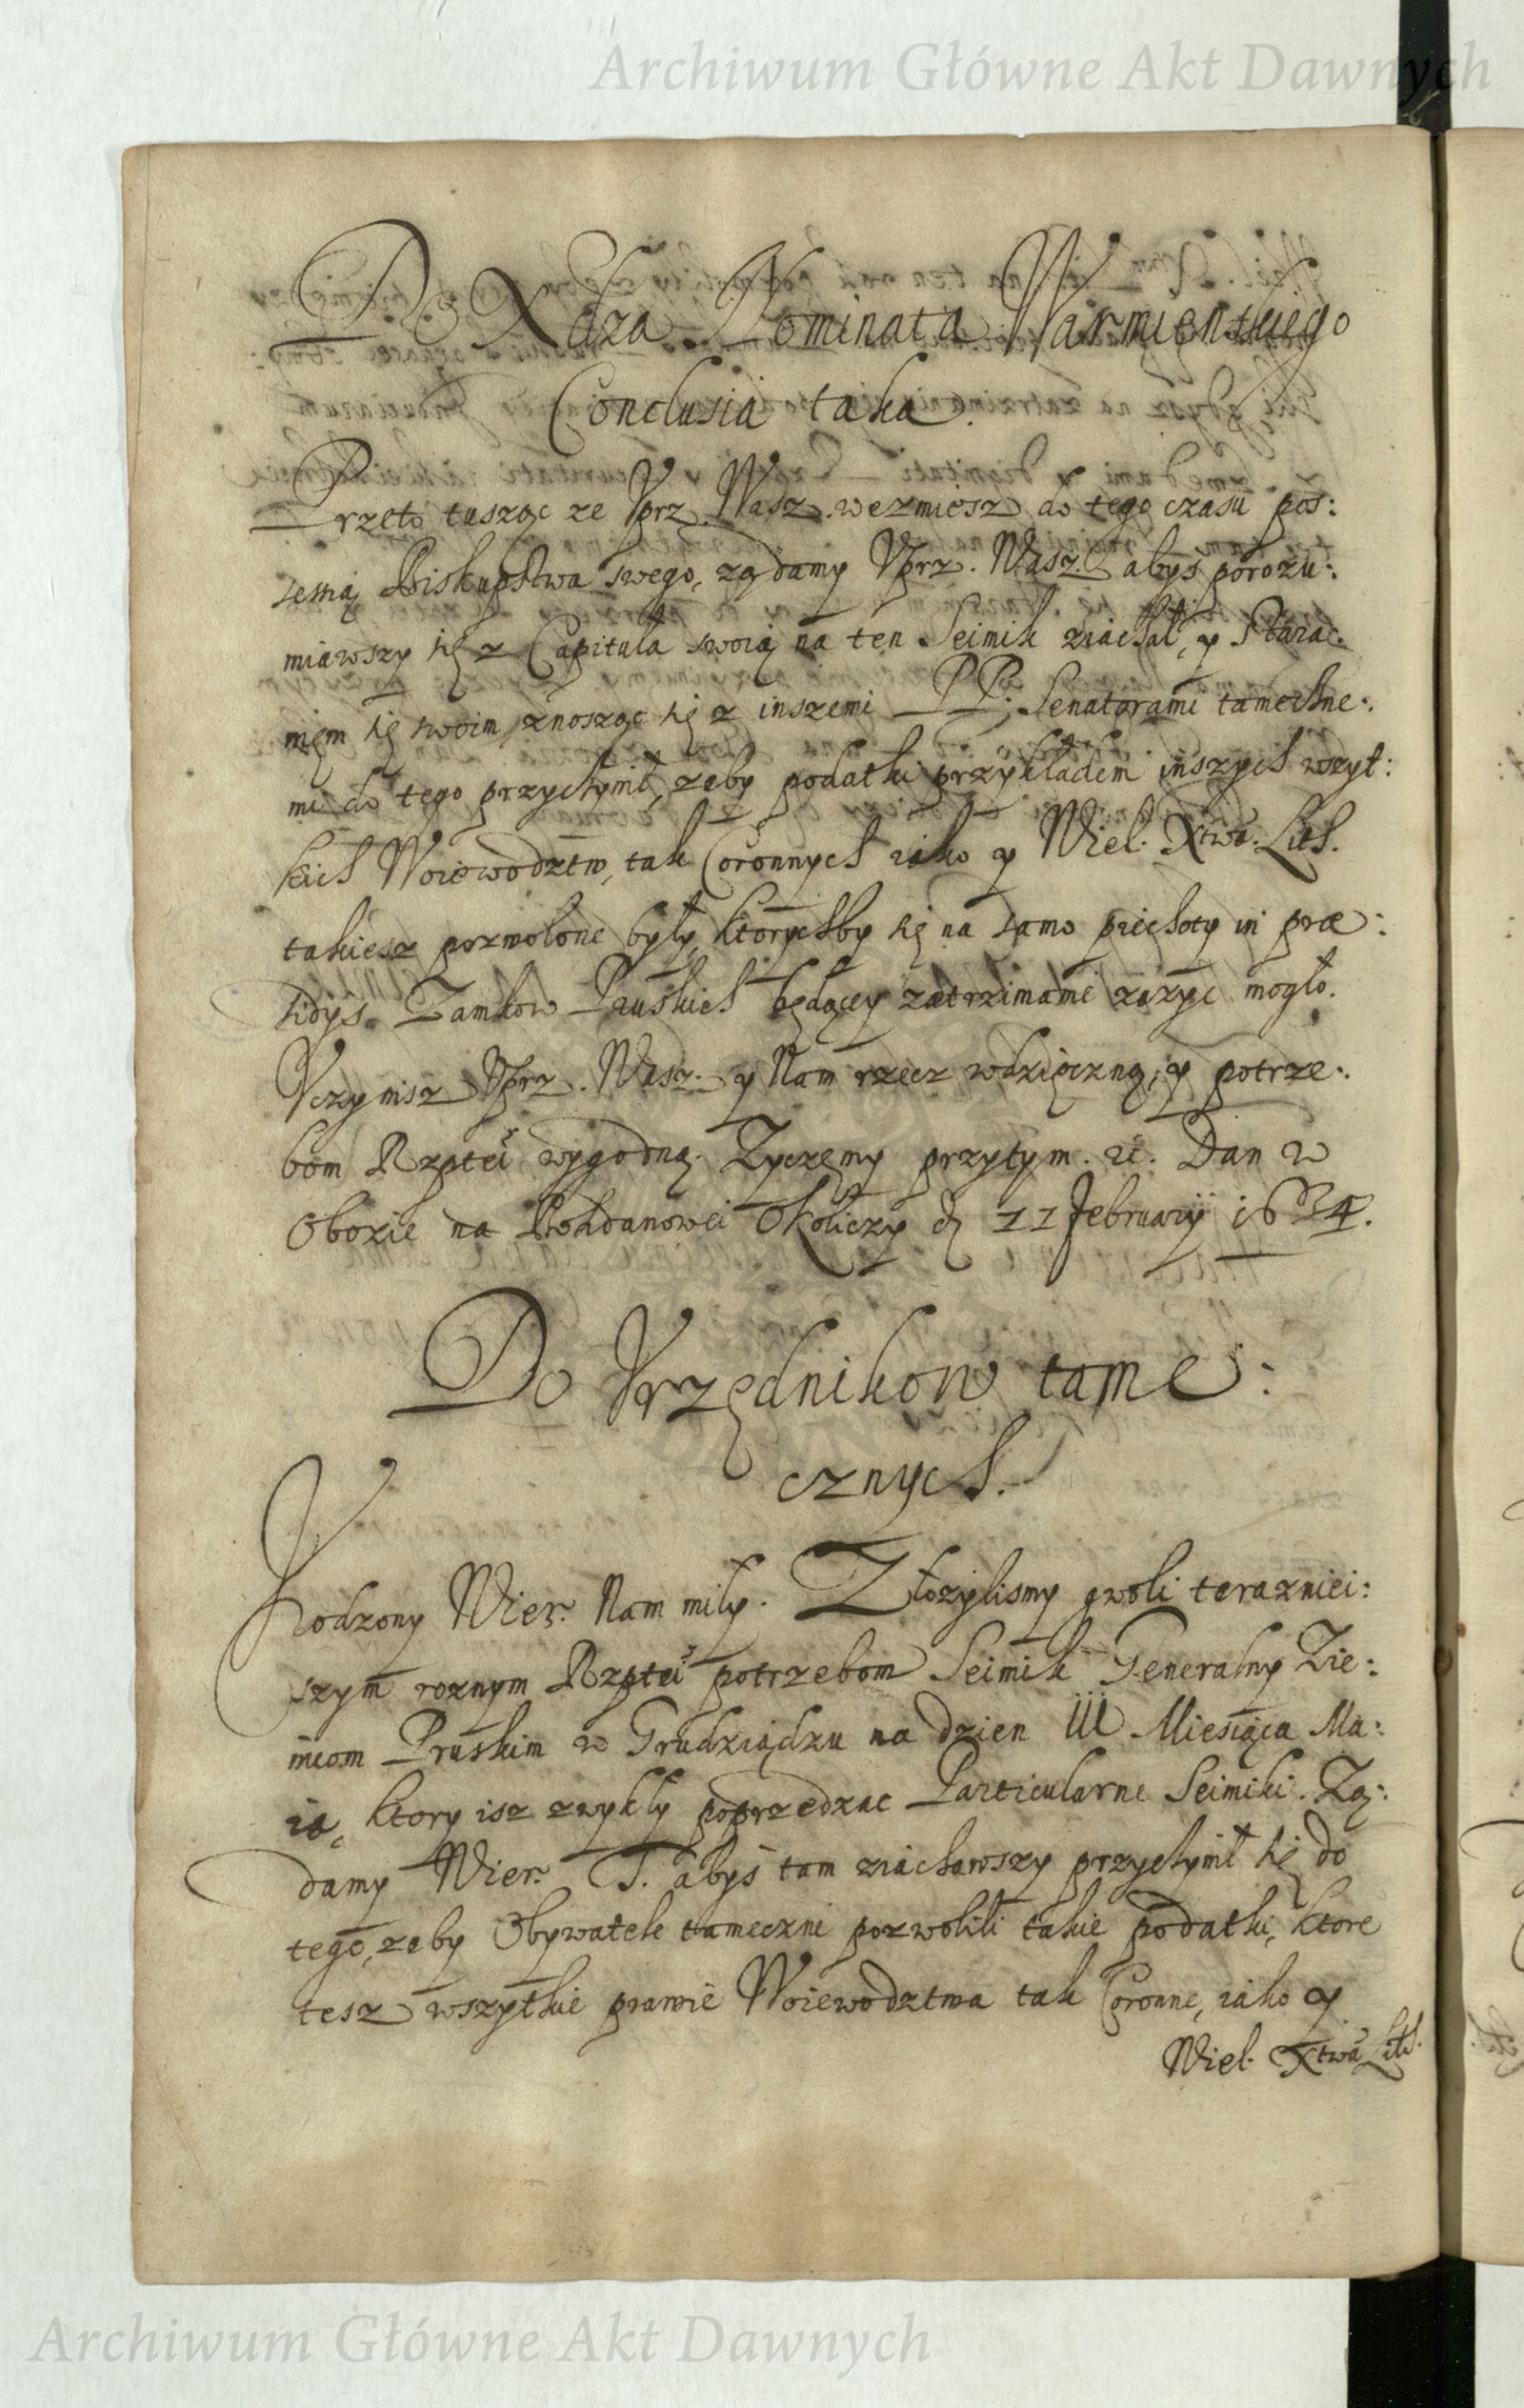 Archiwum Główne Akt Dawnych
Do Xdza Nominata Warmienskiego
Conclusia taka.
Przeto tusząc ze Vprz. Wasz. wezmiesz do tego czasu pos:
sessią Biskupstwa swego, ządamy Vprz. Wasz. abyś porozu:
miawszy się z Capitułą swoią na ten Seimik ziachał, y Stara:
niem się swoim znosząc się z inszemi PP: Senatorami tameczne:
mi do tego przychynił, zeby podatki przykładem inszych wszyt:
kich Woiewodztw, tak Coronnych iako y Wiel. Xtwa Lith.
takiesz pozwolone były, ktorychby się na samo piechoty in præ:
sidys Zamkow Pruskich będącey zatrzimanie zazyc mogło.
Vczynisz Vprz. Wasz. y Nam rzecz wdzięczną, y potrze:
bom Rzptei wygodną. Zyczemy przytym. etc. Dan w
Obozie na Bohdanowei Okoliczy d. 11 february 1634.
Do Vrzędnikow tame:
cznych.
Vrodzony Wier. Nam miły. Złozylismy gwoli terazniei:
szym roznym Rzptei potrzebom Seimik Generalny Zie:
miom Pruskim w Grudziądzu na dzien III Miesiąca Ma:
ia, ktory isz zwykły poprzedzac Particularne Seimiki. Zą:
damy Wier. T. abyś tam ziachawszy przychynił się do
tego, zeby Obywatele tameczni pozwolili takie podatki, ktore
tesz wszytkie prawie Woiewodztwa tak Coronne, iako y
Wiel. Xtwa Lith.
Archiwum Główne Akt Dawnych